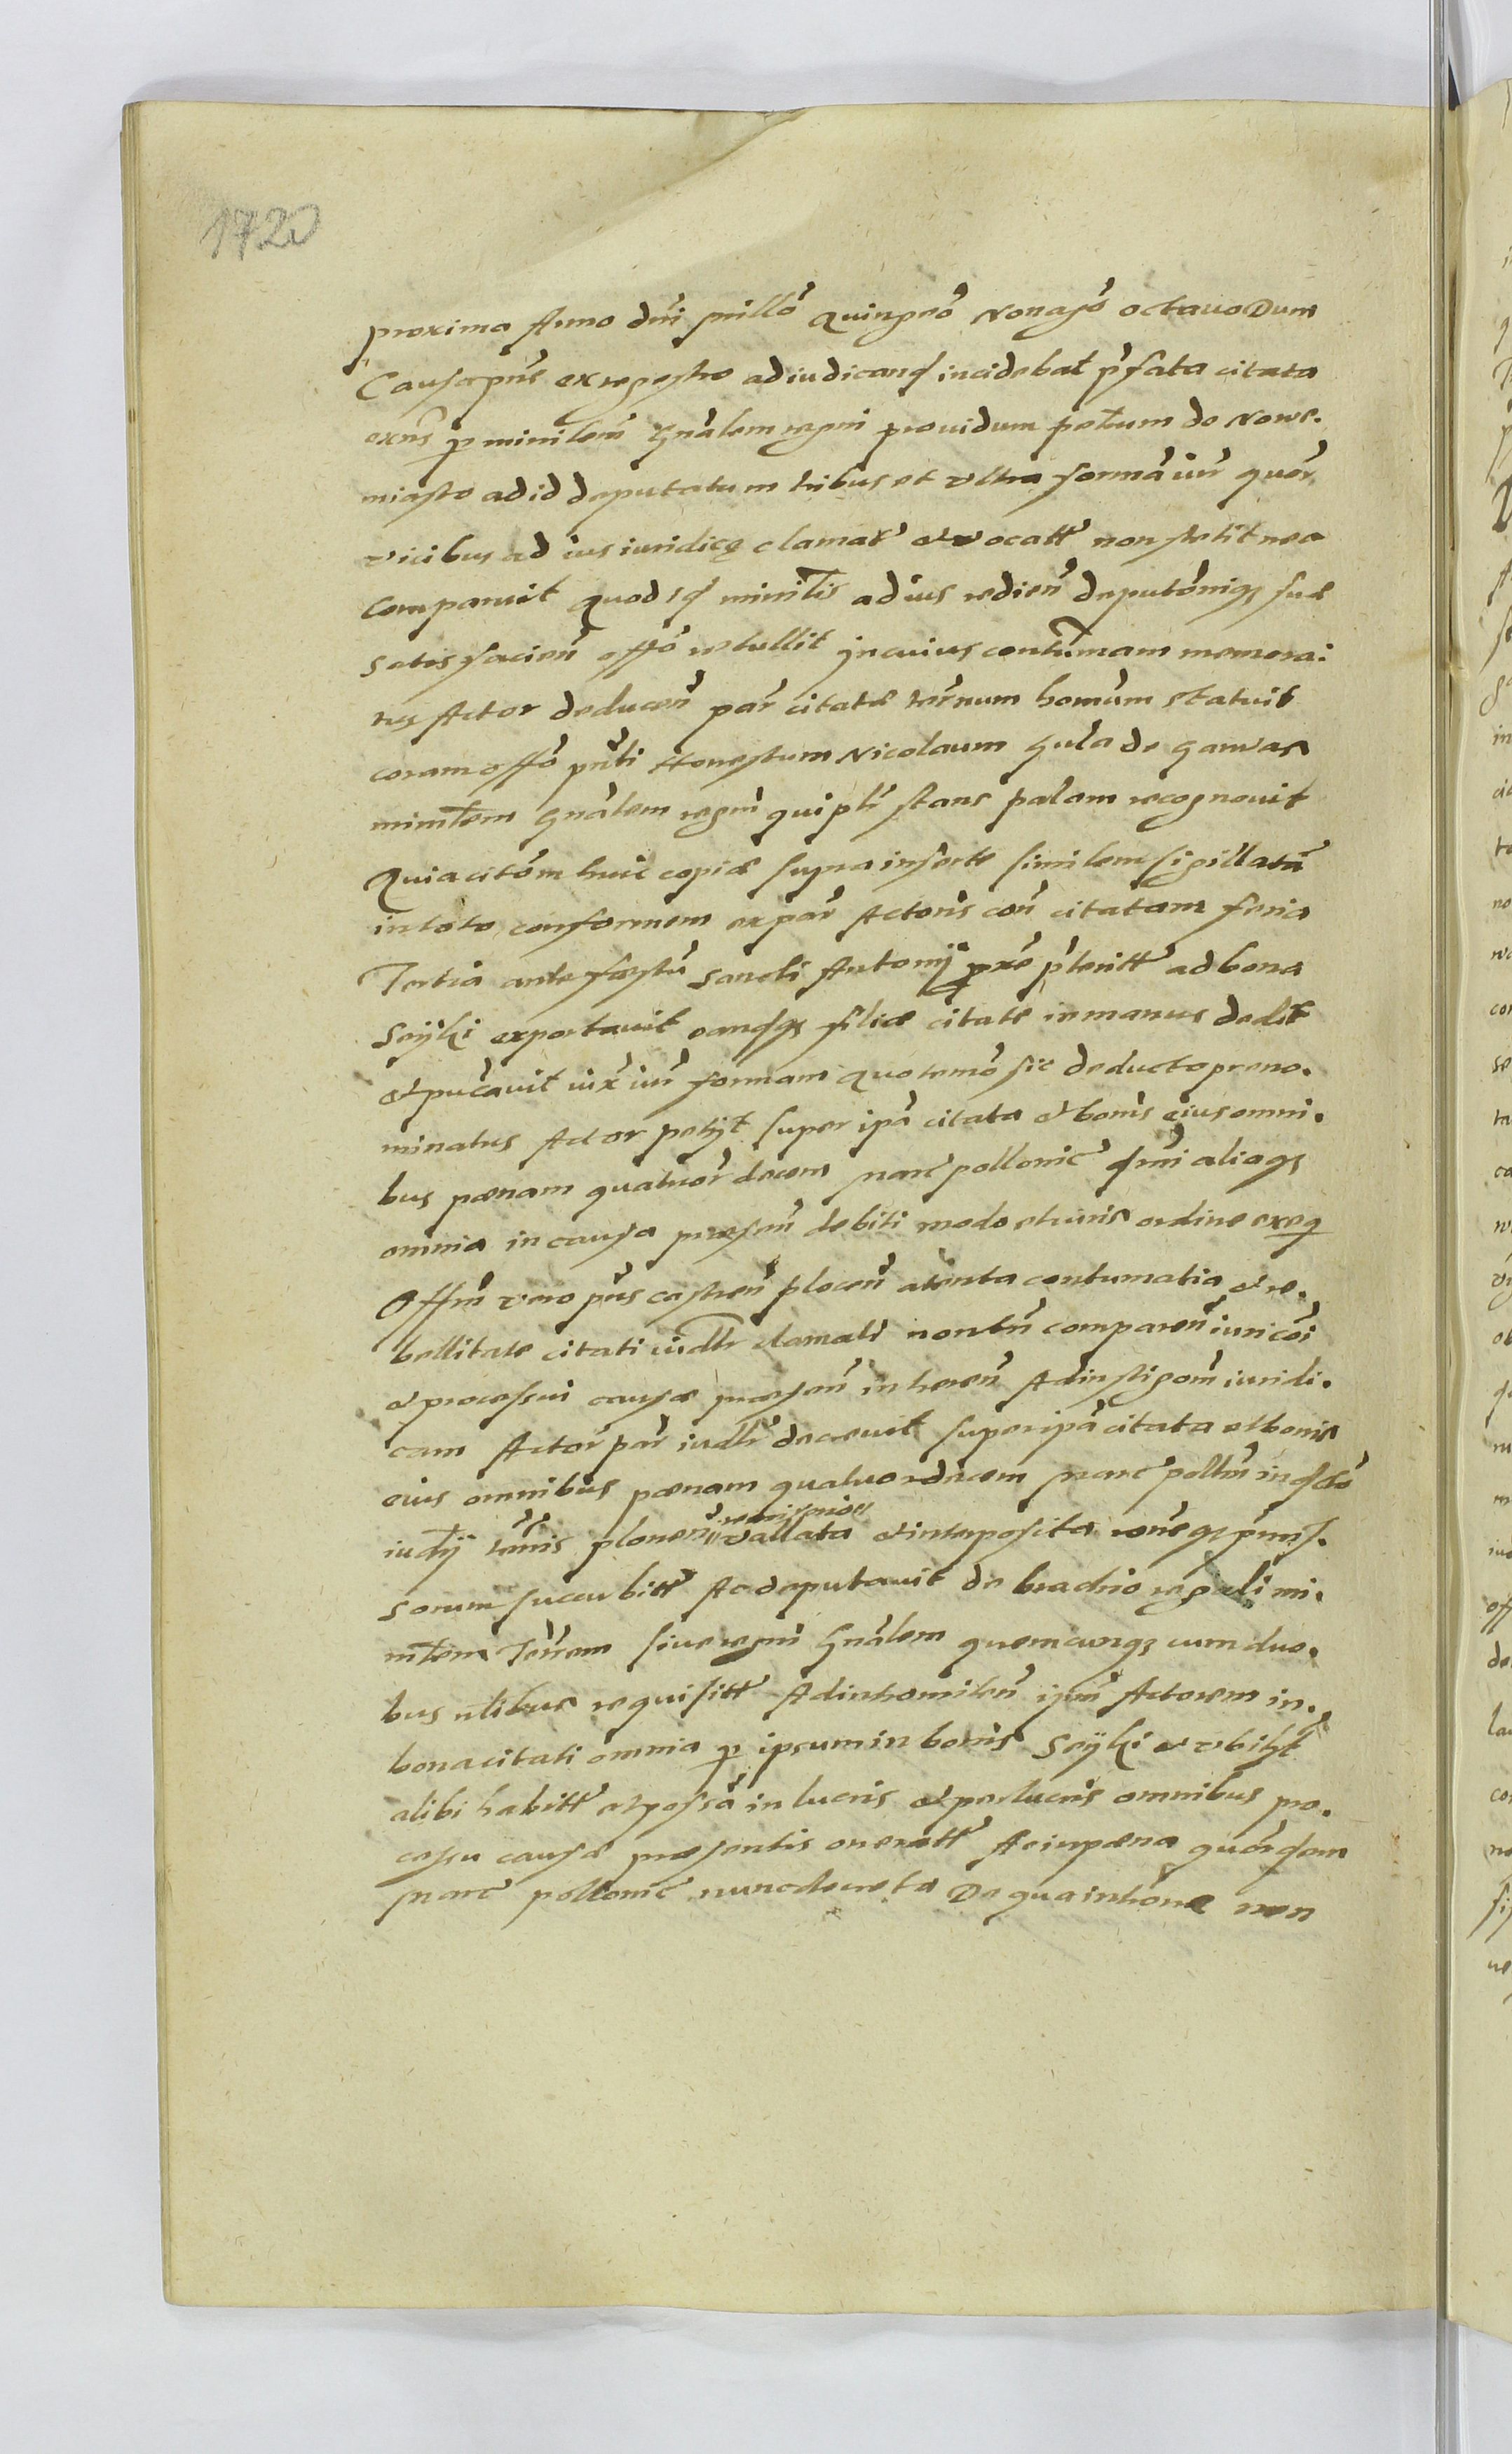 1720
proxima Anno dni millo quingeo Nonago octavo Dum
Causa pns ex regestro ad iudicand incidebat pfata citata
exns p minilem gnalem regni providum petrum de Nowe.
miasto ad id deputatum tribus et ultra forma iur quor
vicibus ad ius iuridice clamat et vocatt non stetit nec
comparuit quod id minilis ad ius redien deputoniq suae
satisfacien offo retullit in cuius contumam memora:
tus Actor deducen par citatae ternum homum statuit
coram offo pnti Honestum Nicolaum Gula de Garwar
minilem gnalem regni qui pti stans palam recognovit
Quia citom huic copiae supra insertae similem sigillatu
in toto conformem ex par Actoris con citatam feria
Tertia ante festu Sancti Antonij pxe pteritt ad bona
Seijki exportavit eandq filiae citate in manus dedit
et pucavit iux iur formam quo termo sic deducto preno.
minatus Actor petijt super ipa citata et bonis eius omni.
bus poenam quatuor decem marc pollonic qmi aliaq
omnia in causa presen debiti modo et iuris ordine exeq
Offm vero pns castren plocen atenta contumatia et re.
bellitate citati iudtr clamati non tn comparen iuri coi
et processui causae presen inheren Ad instigom iuridi.
cam Actor par iudtr decrevit super ipa citata et bonis
eius omnibus poenam quatuordecem marc polln in
iudij terris plonen remissione vallata et interposita roneq pmis.
sorum succubitt Ac deputavit de brachio regali mi.
nilem Terrem sive regni gnalem quemcunq cum duo.
bus nlibus requisitt Ad intromitten ipm Actorem in.
bona citati omnia p ipsum in bonis Seijki et ubilibt
alibi habitt et possa in lucris et perlucris omnibus pro.
cessu causae presentis oneratt Ac in poena quordem
marc pollonic nunc decreta De qua introne non